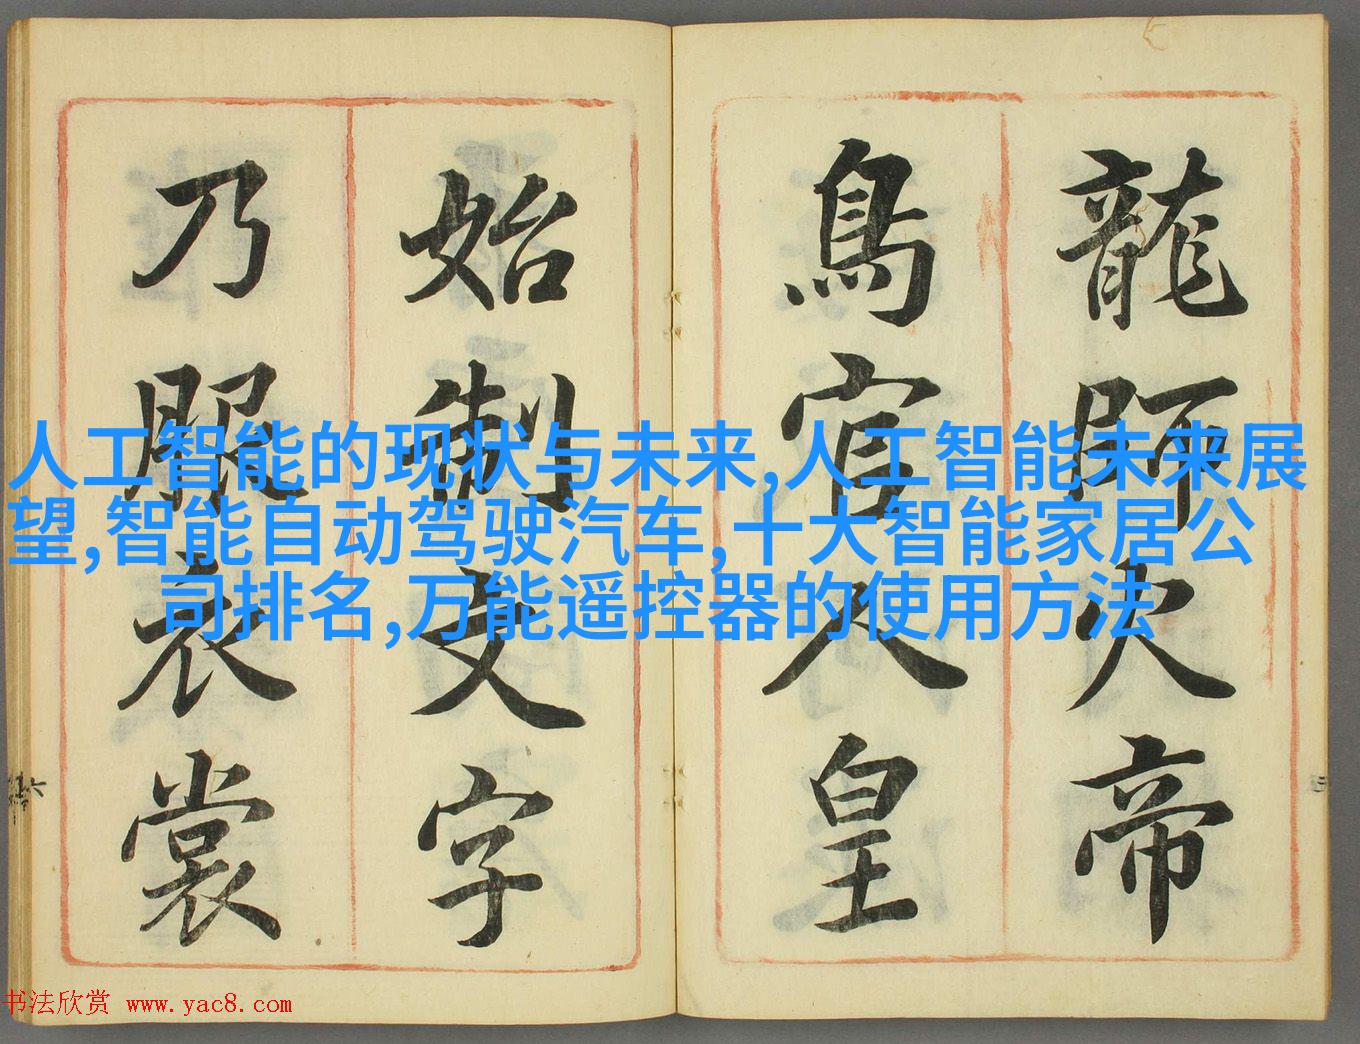 龍師火帝
鳥官人皇
始制文字
乃服衣裳
人工智能的现状与未来,人工智能未来展
望,智能自动驾驶汽车,十大智能家居公
司排名,万能遥控器的使用方法
书法欣赏 www.yac8.com